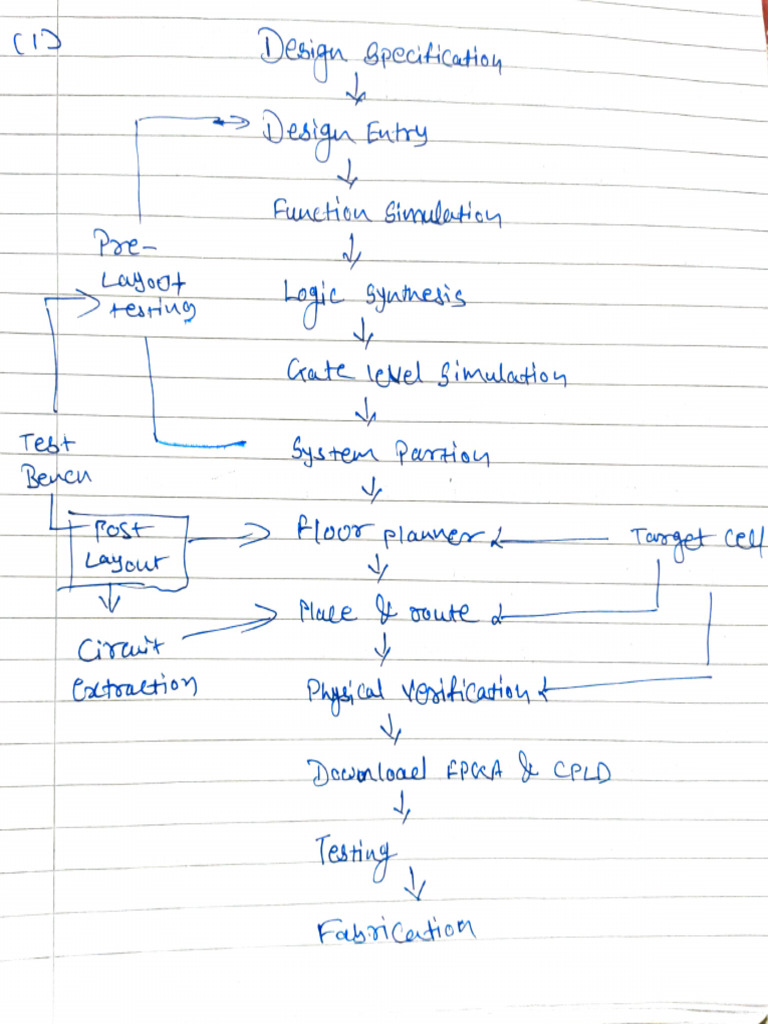 (1)
Design Specification
Design Entry
Function Simulation
Pre-
Layout
testing
Logic Synthesis
Gate level Simulation
Test
Bench
System Partion
Post
Layout
Floor planner
Target Cell
Place & route
Circuit
Extraction
Physical verification
Download FPGA & CPLD
Testing
Fabrication